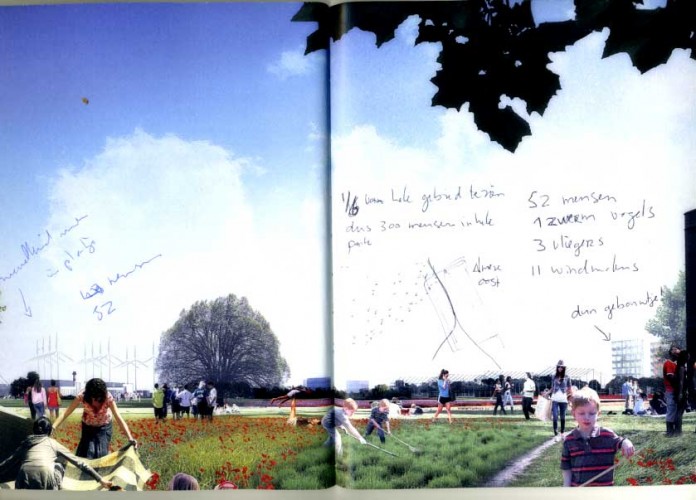 in plaatje
mensen
52
1/6 van hele gebied te zien
dus 300 mensen in hele
park
Almere
oost
52 mensen
1 zwerm vogels
3 vliegers
11 windmolens
dun gebouwtje